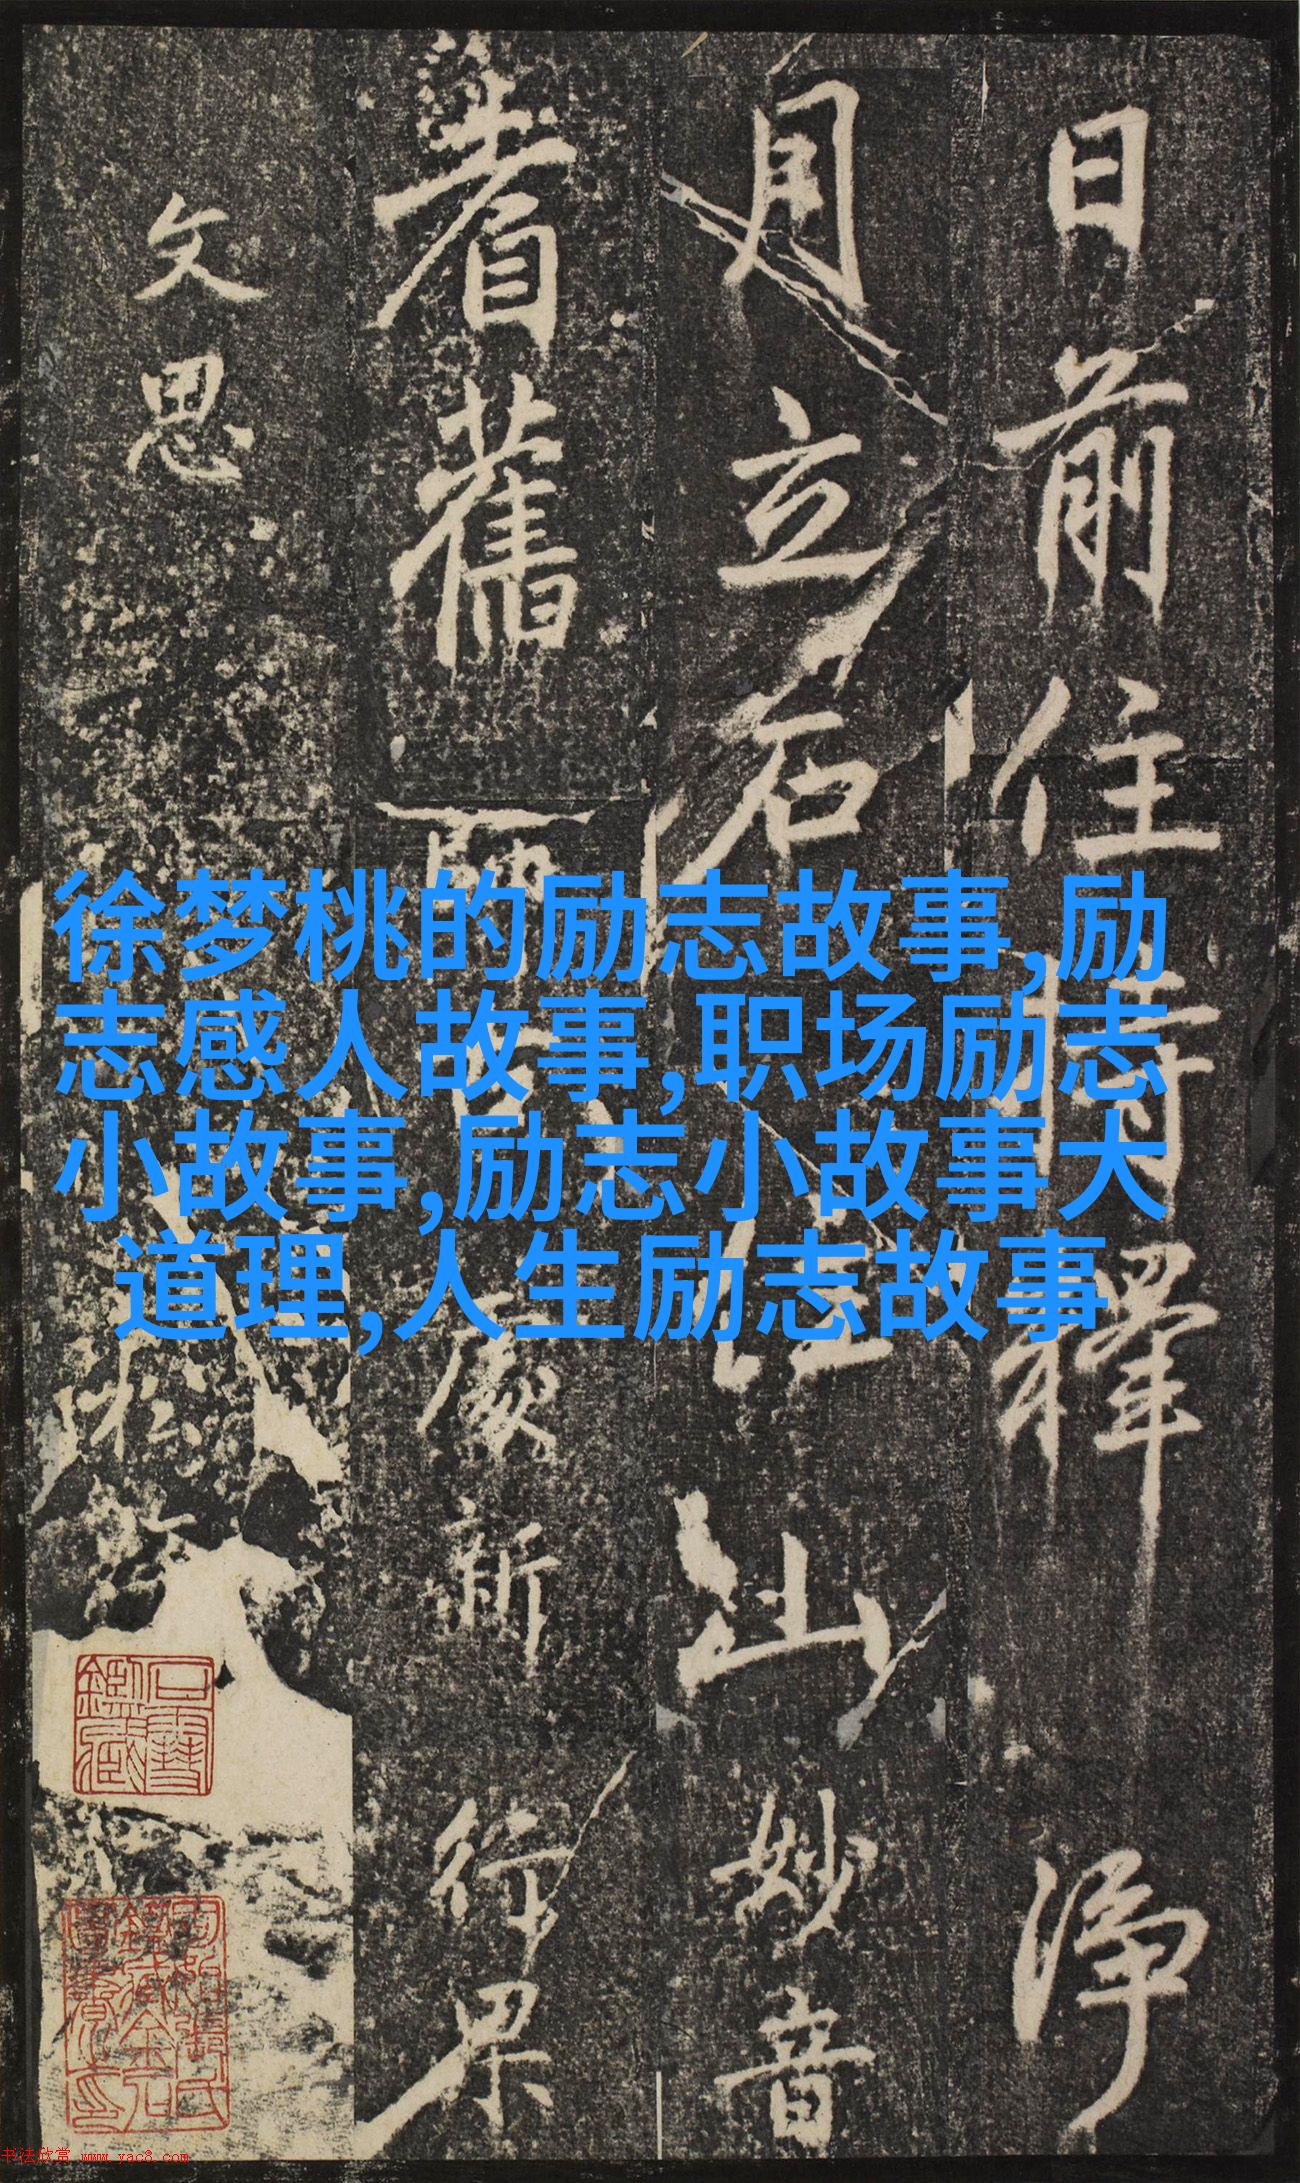 徐梦桃的励志故事,励
志感人故事,职场励志
小故事,励志小故事大
道理,人生励志故事
日前住持釋淨
月立石住山妙音
耆舊師處新行果
文思
书法欣赏 www.yac8.com